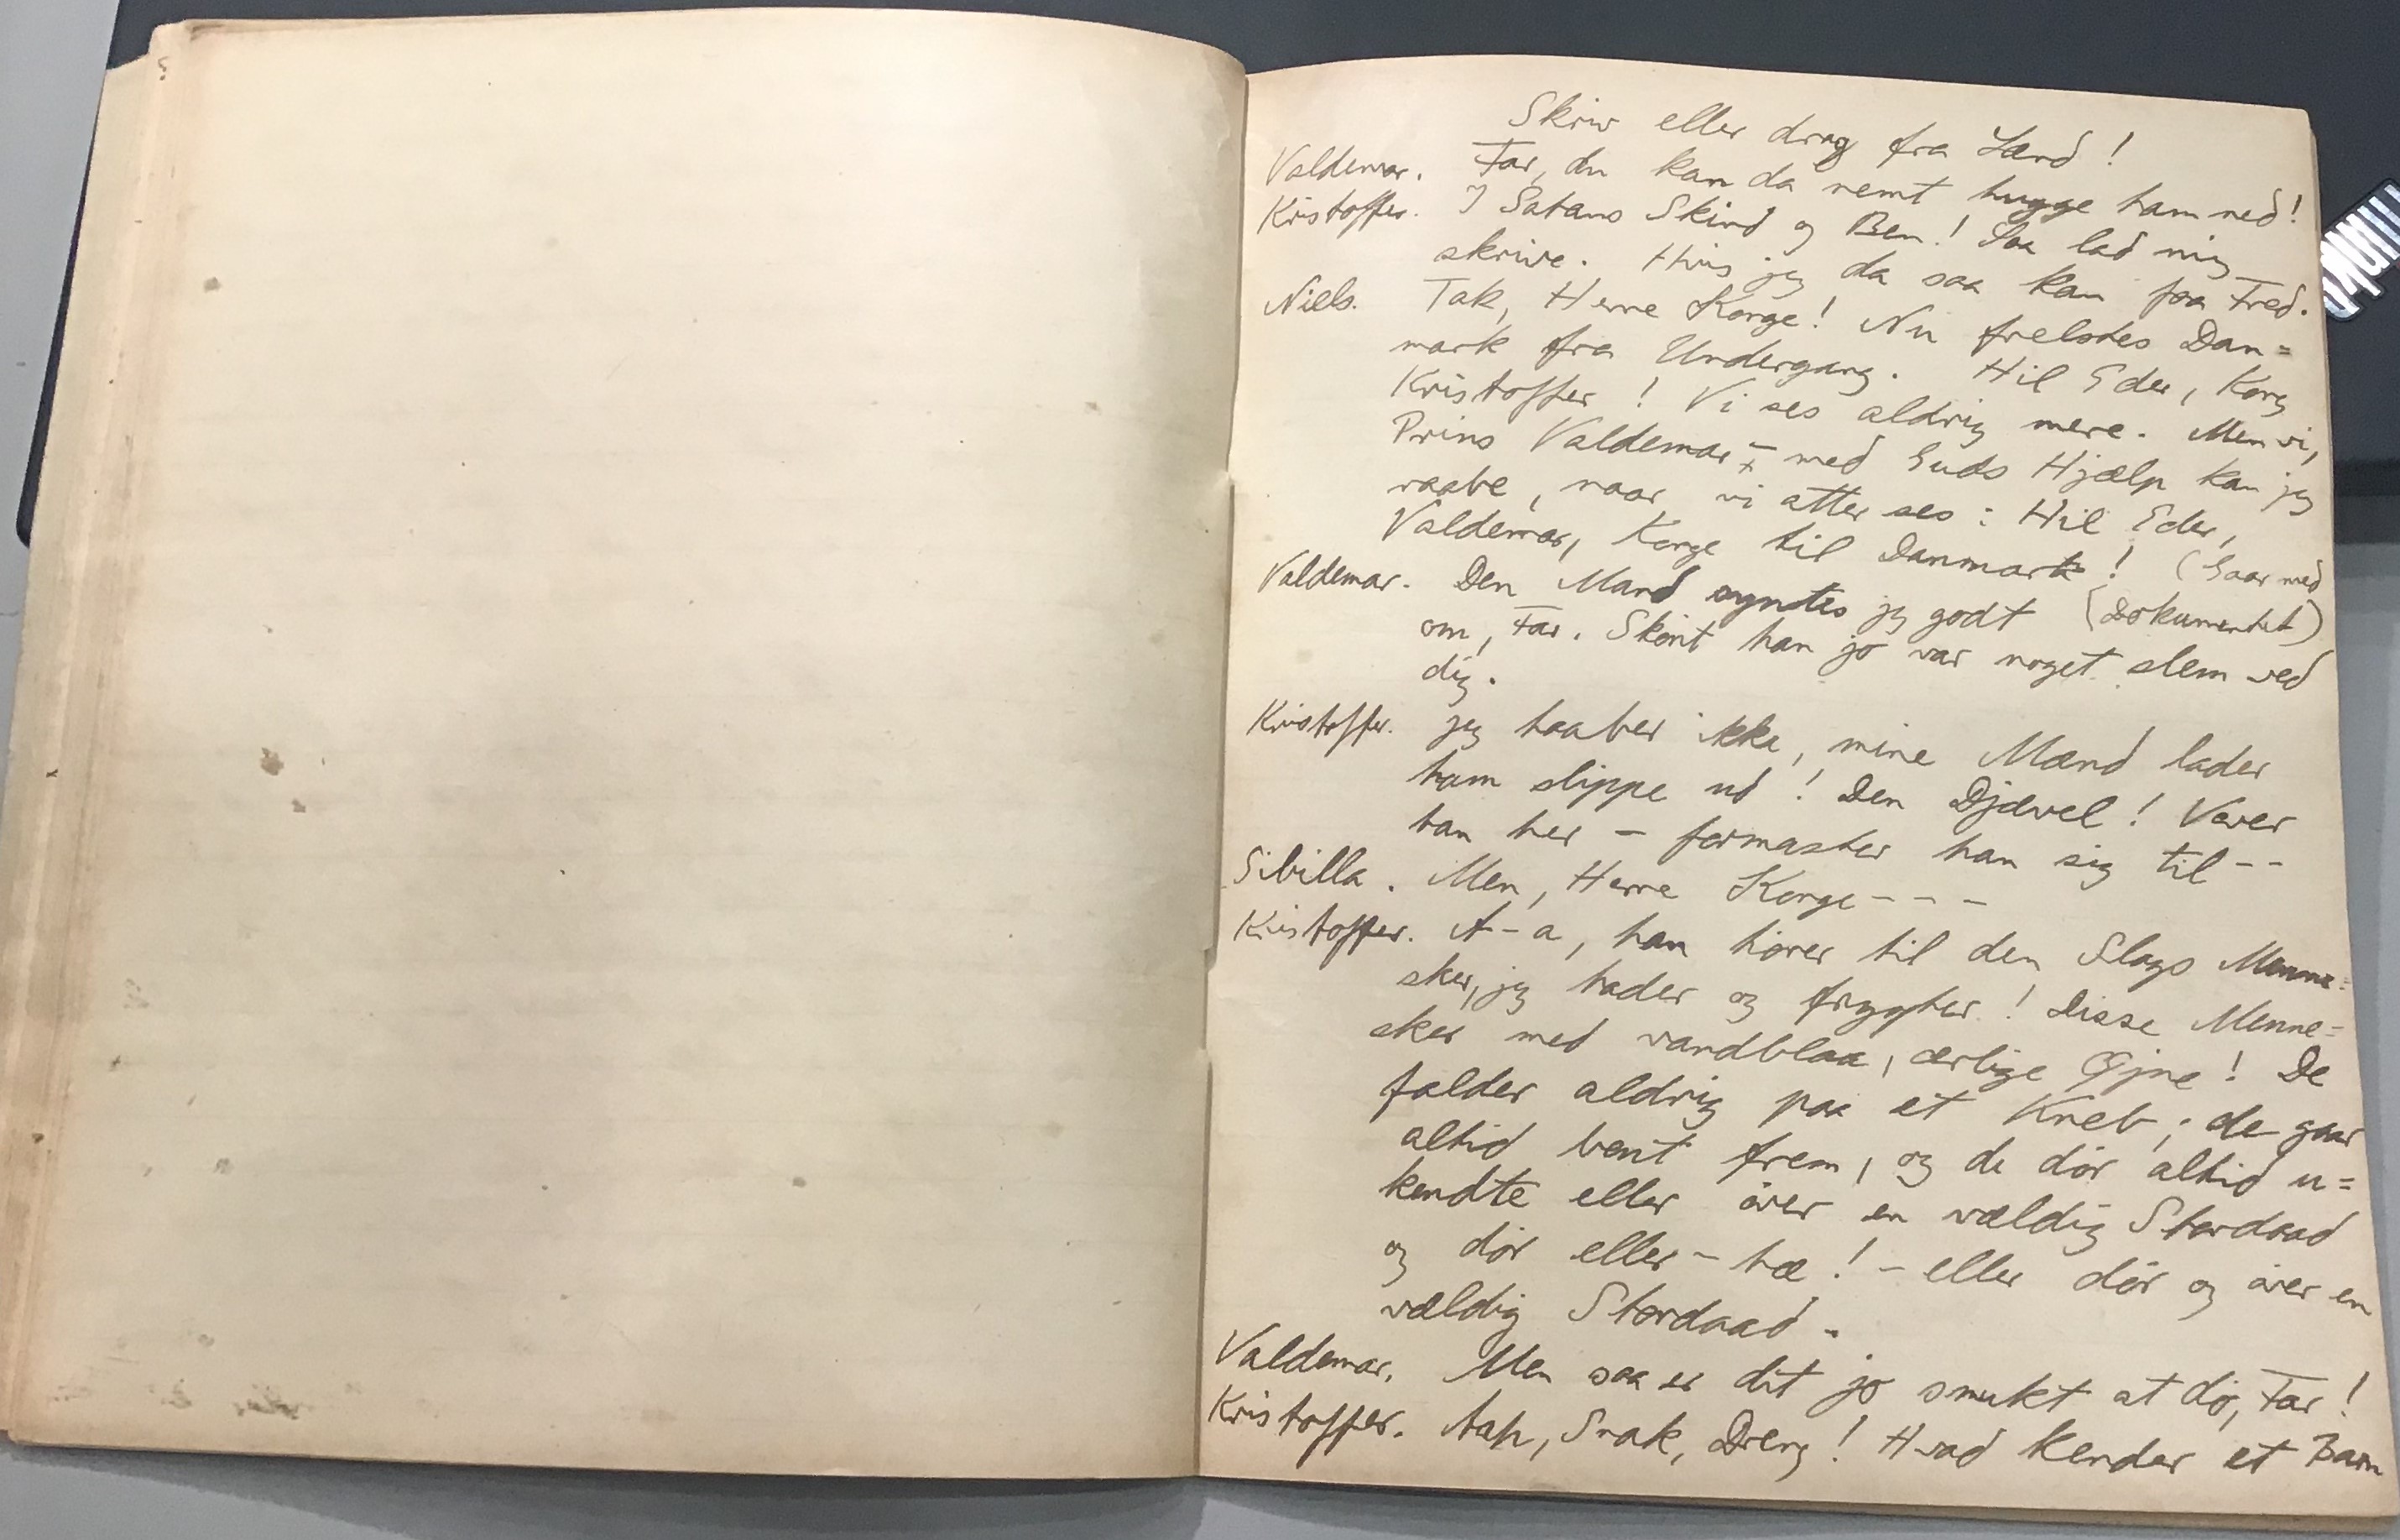 Skriv eller drag fra Land!
Valdemar. Far, du kan da nemt hugge ham ned!
Kristoffer. I Satans Skind og Ben! Saa lad mig
skrive. Hvis jeg da saa kan faa Fred.
Niels. Tak, Herre Konge! Nu frelstes Dan=
mark fra Undergang. Hil Eder, Kong
Kristoffer! Vi ses aldrig mere. Men vi,
Prins Valdemar, – med Guds Hjælp kan jeg
raabe, naar vi atter ses: Hil Eder,
Valdemar, Konge til Danmark! (Gaar med
Valdemar. Den Mand syntes jeg godt (Dokumentet)
om, Far. Skönt han jo var noget slem ved
dig.
Kristoffer. Jeg haaber ikke, mine Mænd lader
ham slippe ud! Den Djævel! Vover
han her – formaster han sig til --
Sibilla. Men, Herre Konge - - -
Kristoffer. A-a, han hörer til den Slags Menne=
sker, jeg hader og frygter! Disse Menne=
sker med vandblaa, ærlige Øjne! De
falder aldrig paa et Kneb; de gaar
altid bent frem, og de dör altid u=
kendte eller över en vældig Stordaad
og dör eller – hæ! – eller dör og över en
vældig Stordaad.
Valdemar. Men saa er det jo smukt at dö, Far!
Kristoffer. Aah, Snak, Dreng! Hvad kender et Barn